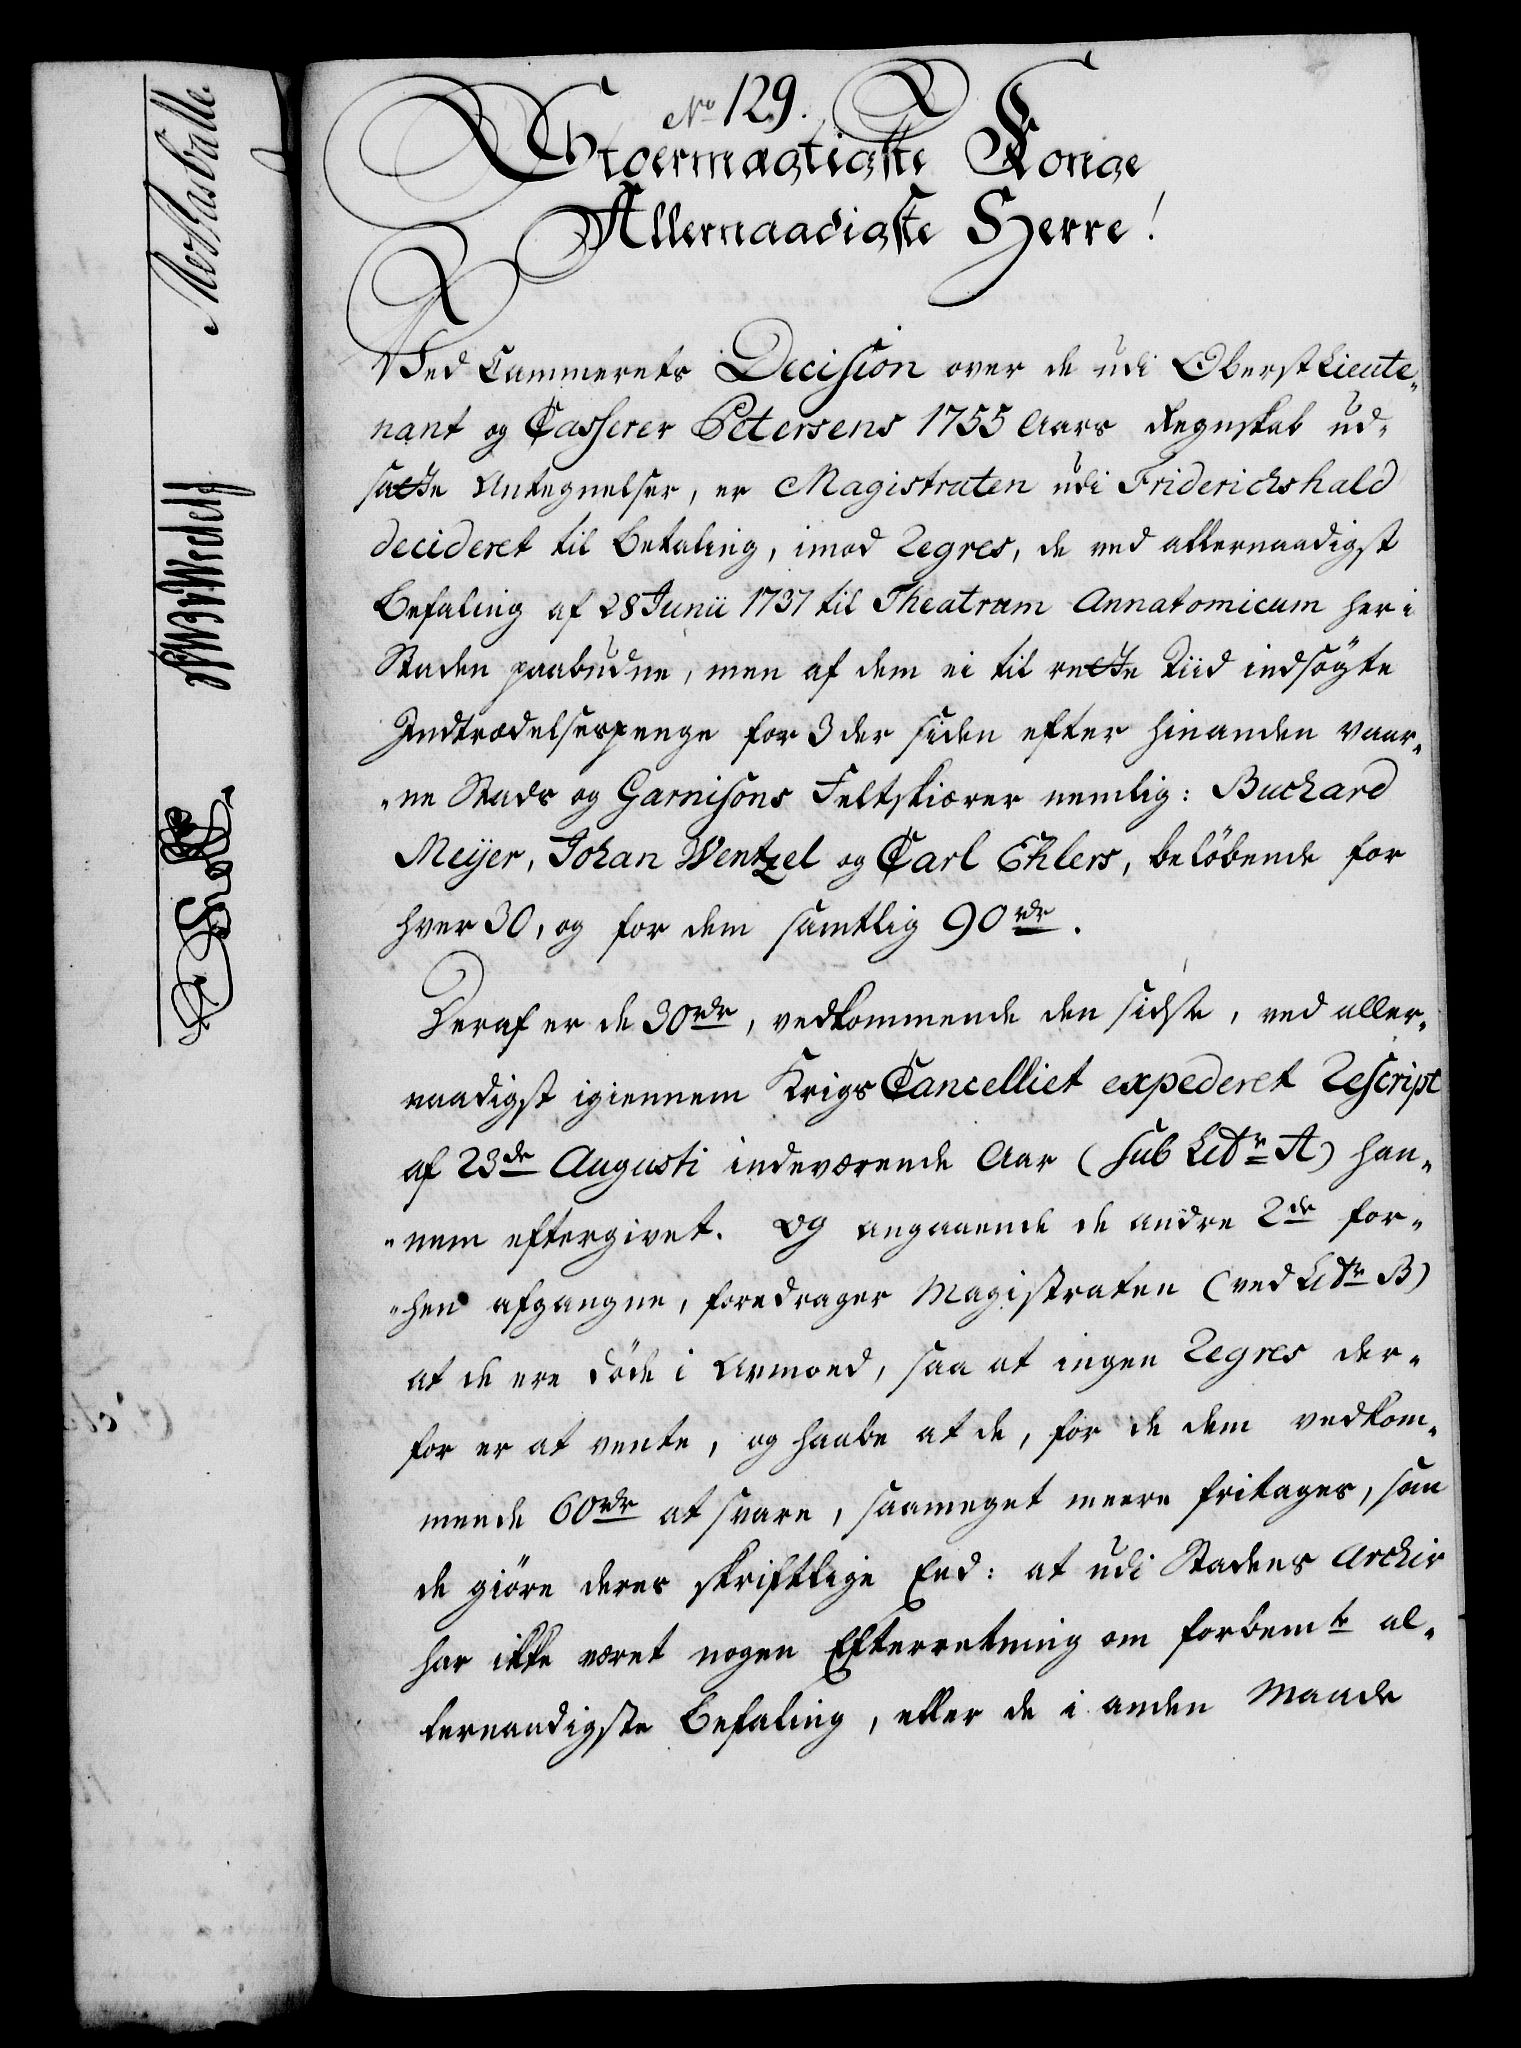 No 129.
Stoermægtigste Konge
Allernaadigste Herre!
Ved Cammerets Decision over de udi Oberst Lieute-
nant og Casserer Petersens 1755 Aars Regnskab ud-
satte Antegnelser, er Magistraten udi Friderichshald
decideret til Betaling, imod Regres, de ved allernaadigst
Befaling af 28 Junii 1737 til Theatrum Annatomicum her i
Staden paabudne, men af dem ei til rette Tiid indsøgte
Indtrædelsespenge for 3 der siden efter hinanden vaar-
ne Stads og Garnisons Feltskiærer nemlig: Buchard
Meijer, Johan Wentzel og Carl Ehlers, beløbende for
hver 30, og for dem samtlig 90 rdr.
Deraf er de 30 rdr, vedkommende den sidste, ved aller-
naadigst igiennem Krigs Cancelliet expederet Rescript
af 23de Augusti indeværende Aar (sub Litr A) han-
nem eftergivet. Og angaaende de andre 2de for-
hen afgangne, foredrager Magistraten (ved Litr B)
at de ere døde i Armoed, saa at ingen Regres der-
for er at vente, og haabe at de, for de dem vedkom-
mende 60 rdr at svare, saameget meere fritages, som
de giöre deres skriftlige Eed: at udi Stadens Archiv
har ikke været nogen Efterretning om forbemte al-
lernaadigste Befaling, eller de i anden Maade